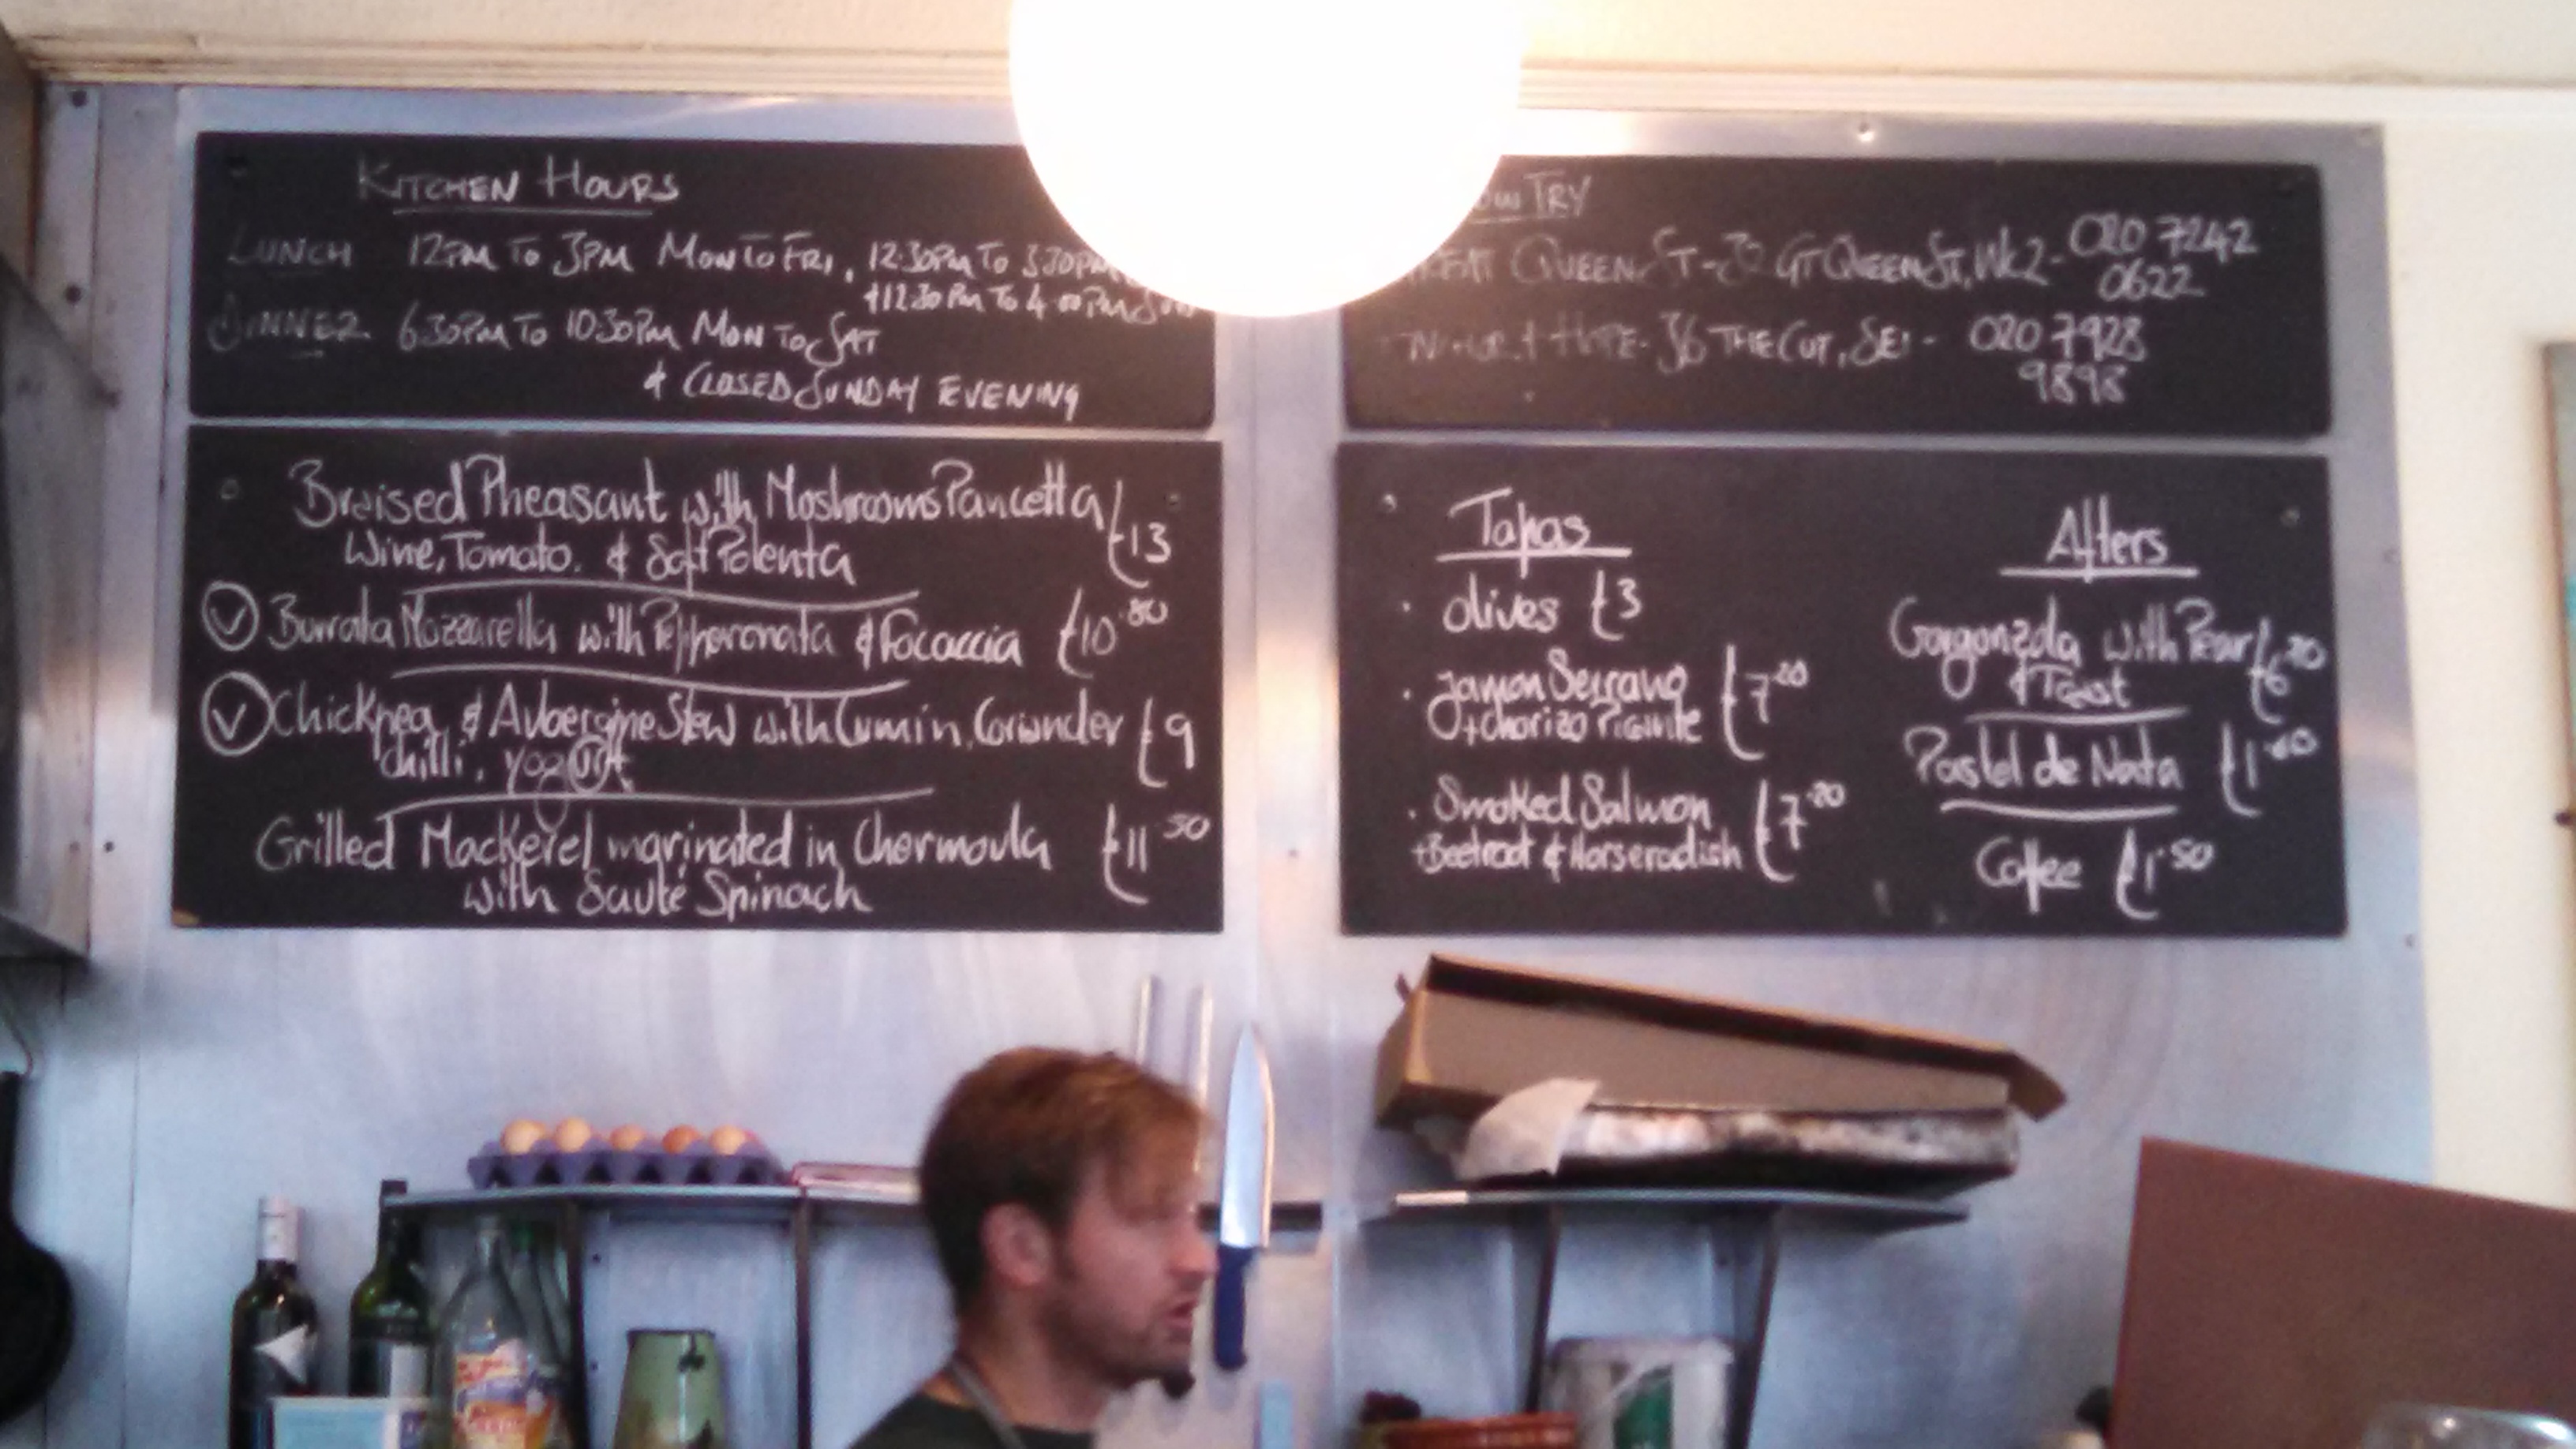 KITCHEN HOURS
LUNCH 12PM TO 3PM MON TO FRI, 12:30PM TO 3:30PM
+12.30PM TO 4.00PM SUN
DINNER 6:30PM TO 10:30PM MON TO SAT
& CLOSED SUNDAY EVENING
Braised Pheasant with Moshrooms Pancetta £13
Wine, Tomato. & Soft Polenta
V Burrata Mozzarella with Pepperonata & Focaccia £10.80
V Chickpea & Aubergine Stew with Cumin, Coriander £9
Chilli, yogurt
Grilled Mackerel marinated in Chermoula £11.50
with Sauté Spinach
TRY
QUEEN ST - 32 GT QUEEN ST, WC2 - 020 7242
0622
HOPE - 36 THE CUT, SE1 - 020 7928
9898
Tapas
olives £3
Jamon Serrano £7.20
+ Chorizo Picante
Smoked Salmon £7.20
+ Beetroot & Horseradish
Afters
Gorgonzola with Pear £6.20
& Toast
Pastel de Nata £1.60
Coffee £1.50